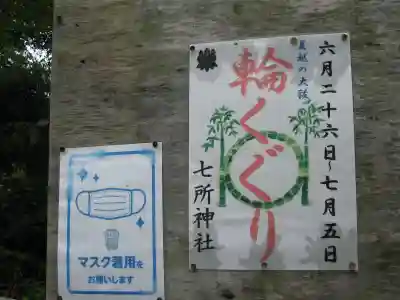 六月二十六日〜七月五日
夏越の大祓
輪くぐり
七所神社
マスク着用を
お願いします